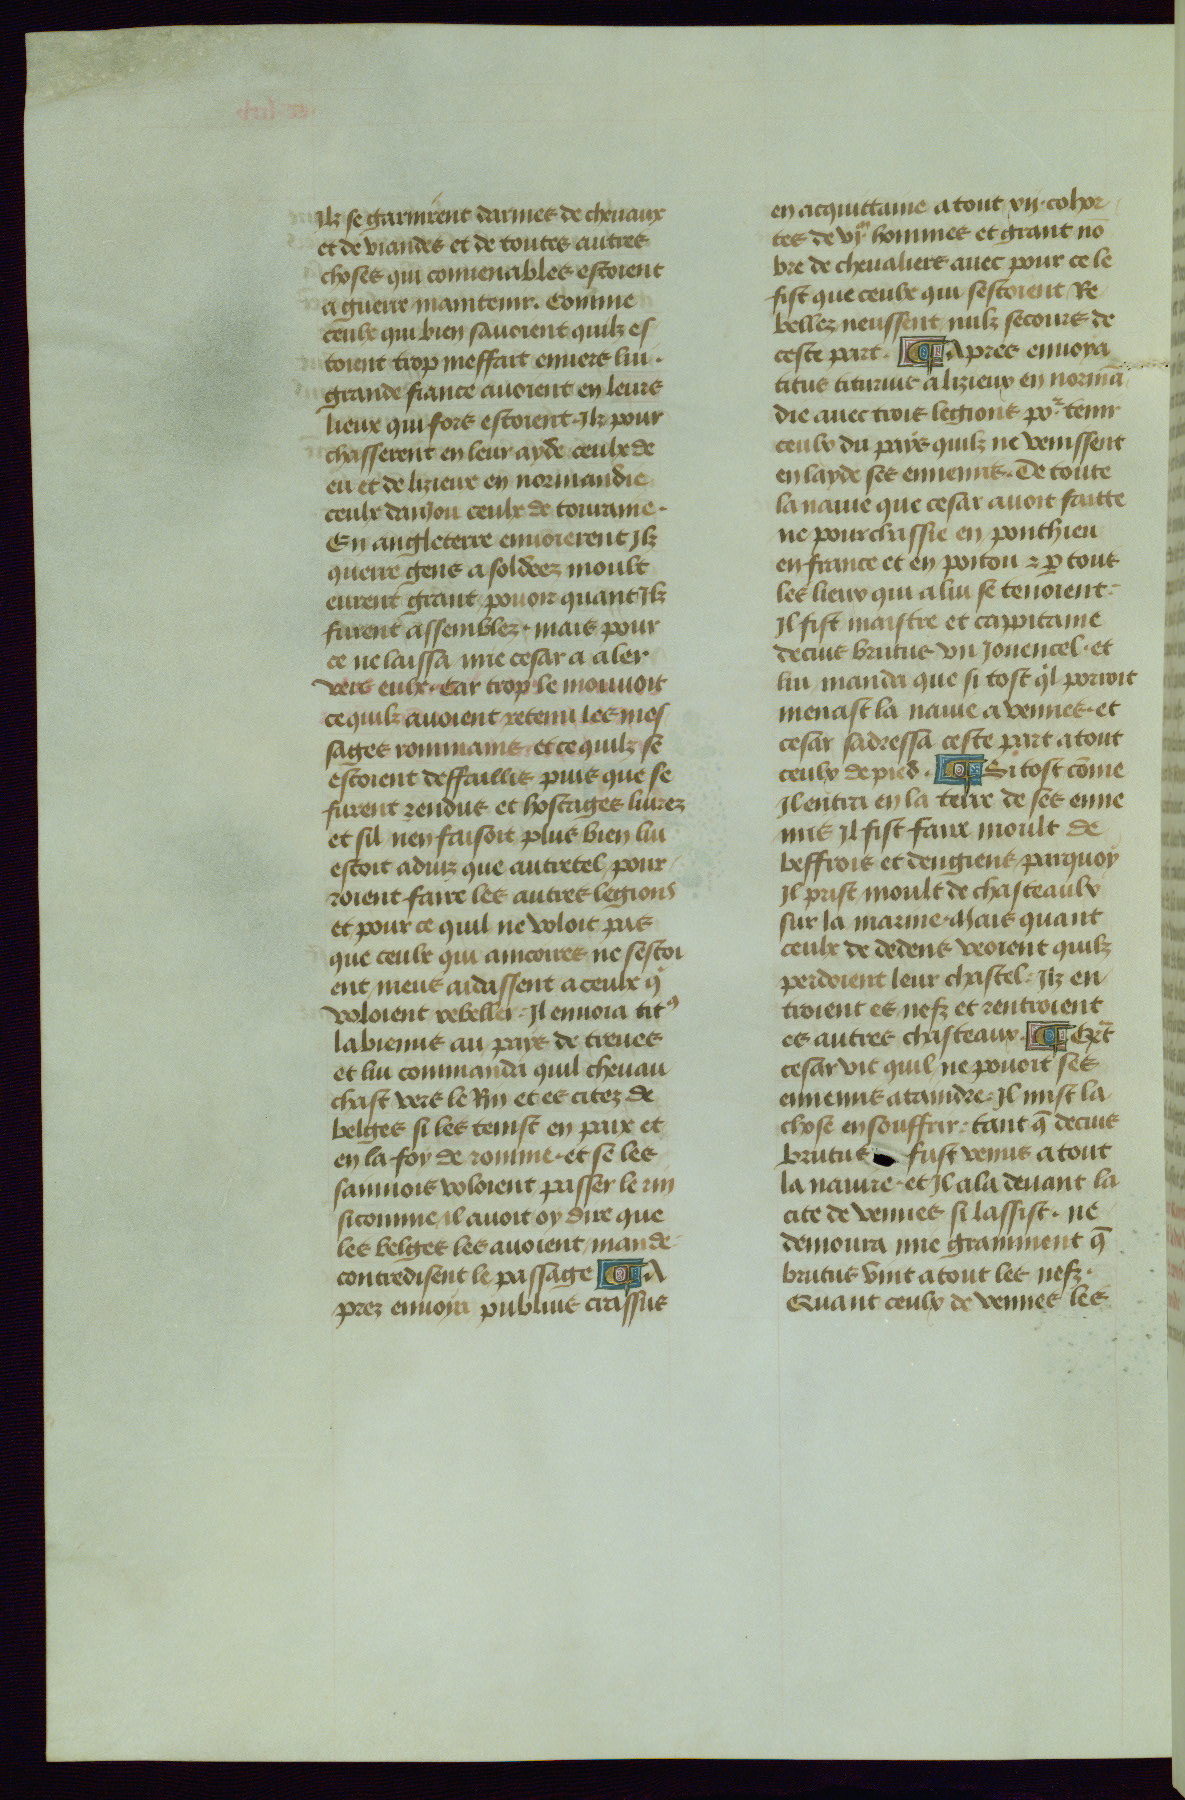 Ilz se garnirent darmes de cheuaux
et de viandes et de toutes autres
choses qui conuenables estoient
a guerre maintenir. Comme
ceulx qui bien sauoient quilz es
toient trop meffait enuers lui.
grande fiance auoient en leurs
lieux qui fors estoient. Ilz pour
chasserent en leur ayde ceulx de
eu et de lizieux en normandie
ceulx danjou ceulx de touraine.
En angleterre enuoierent Ilz
querre gens a soldees moult
eurent grant pouoir quant Ilz
furent assemblez. mais pour
ce ne laissa mie cesar a aler
vers eulx. Car trop le mouuoit
ce quilz auoient retenu les mes
sages rommains et ce quilz se
estoient deffaillis puis que se
furent rendus et hostages liurez
et sil nen faisoit plus bien lui
estoit aduiz que autretel pour
roient faire les autres legions
et pour ce quil ne voloit pas
que ceulx qui aincoires ne sestoi
ent meus aidassent a ceulx qͥ
voloient rebeller. Il enuoia titꝰ
labienus au pays de treues
et lui commanda quil cheuau
chast vers le Rin et es citez de
belges si les tenist en paix et
en la foy de romme. et se les
sannois voloient passer le rin
si comme il auoit oy dire que
les belges les auoient mande
contredisent le passage A
prez enuoia publius crassus
en acquittaine a tout vij. cohor
tes de vjͫ hommes et grant nō
bre de cheualiers auec pour ce le
fist que ceulx qui sestoient Re
bellez neussent nulz secours de
ceste part. Apres enuoya
titus titurius a lizieux en normā
die auec trois legions poᷣ tenir
ceulx du pays quilz ne venissent
en layde ses ennemis. De toute
la nauie que cesar auoit faitte
ne pourchassie en ponthieu
en france et en poitou ⁊ ꝑ tous
les lieux qui a lui se tenoient.
Il fist maistre et cappitaine
decius brutus vn Jouencel. et
lui manda que si tost qͥl porroit
menast la nauie a vennes. et
cesar sadressa ceste part a tout
ceulx de pied. Si tost cōme
Il entra en la terre de ses enne
mis Il fist faire moult de
beffrois et dengiens parquoy
Il prist moult de chasteaulx
sur la marine. Mais quant
ceulx de dedens veoient quilz
perdoient leur chastel. Ilz en
troient es nefz et rentroient
es autres chasteaux.
cesar vit quil ne pouoit ses
ennemis ataindre. Il mist la
chose en souffrir. tant q̄ decius
brutus fust venus a tout
la nauire. et Il ala deuant la
cite de vennes si lassist. ne
demoura mie gramment q̄
brutus vint a tout les nefz.
Quant ceulx de vennes les